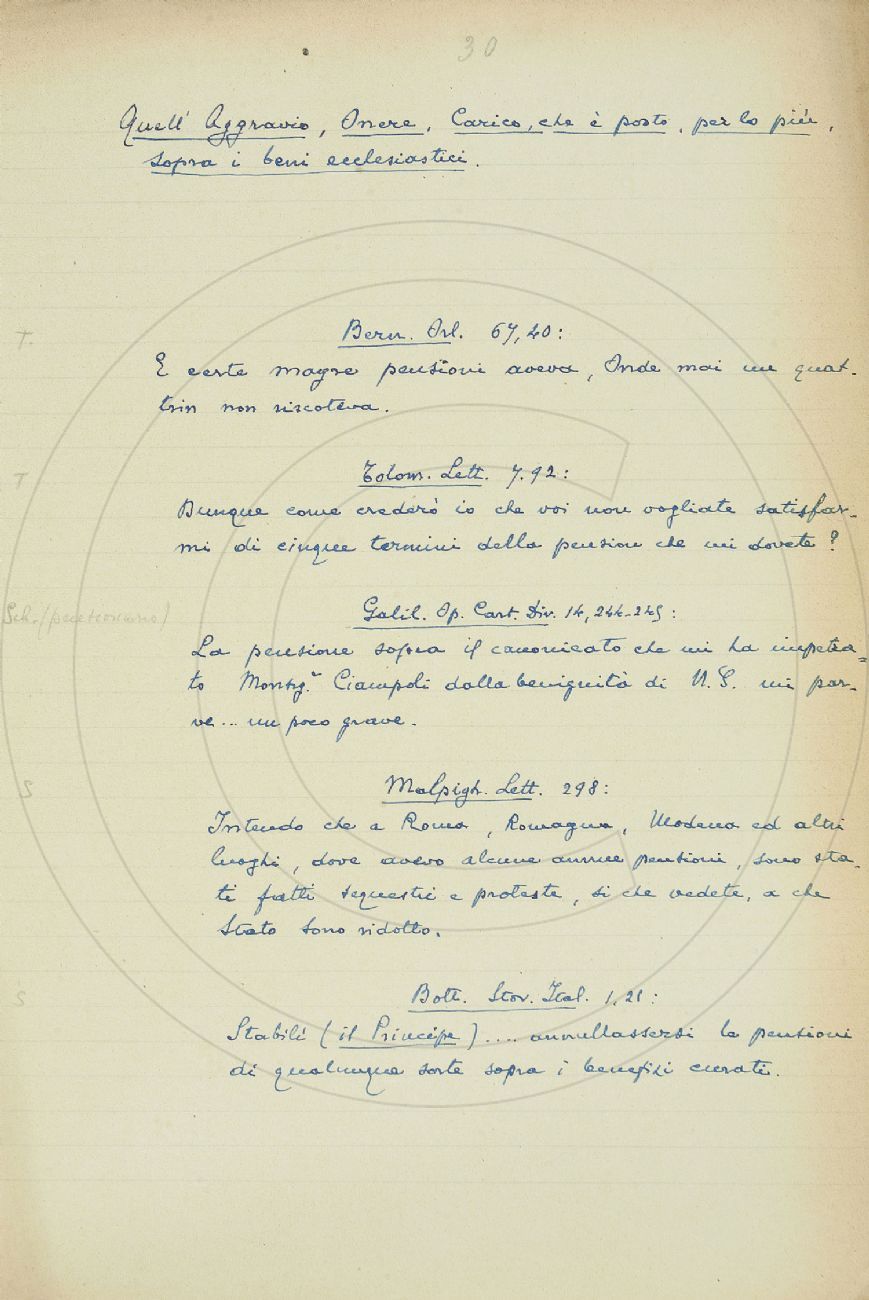 30
Quell' Aggravio, Onere, Carico, che è posto, per lo più,
sopra i beni ecclesiastici.
T.
Bern. Orl. 67, 40:
E certe magre pensioni aveva, Onde mai un quat-
trin non riscoteva.
T
Tolom. Lett. 7.92:
Dunque come crederò io che voi non vogliate satisfar-
mi di cinque termini della pension che mi dovete?
Sch. (pensionario)
Galil. Op. Cart. Div. 14, 244-245:
La pensione sopra il canonicato che mi ha impetra-
to Monsig.r Ciampoli dalla benignità di N. S. mi par-
ve... un poco grave.
S
Malpigh. Lett. 298:
Intendo che a Roma, Romagna, Modena ed altri
luoghi, dove avevo alcune annue pensioni, sono sta-
ti fatti sequestri e proteste, si che vedete, a che
Stato sono ridotto.
S
Bott. Stor. Ital. 1, 21:
Stabilì (il Principe).... annullassersi le pensioni
di qualunque sorte sopra i benefizi curati.